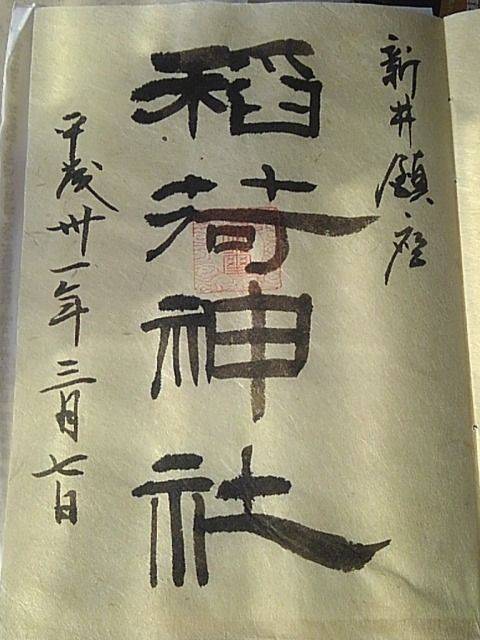 新井鎮座
稲荷神社
平成丗一年三月七日